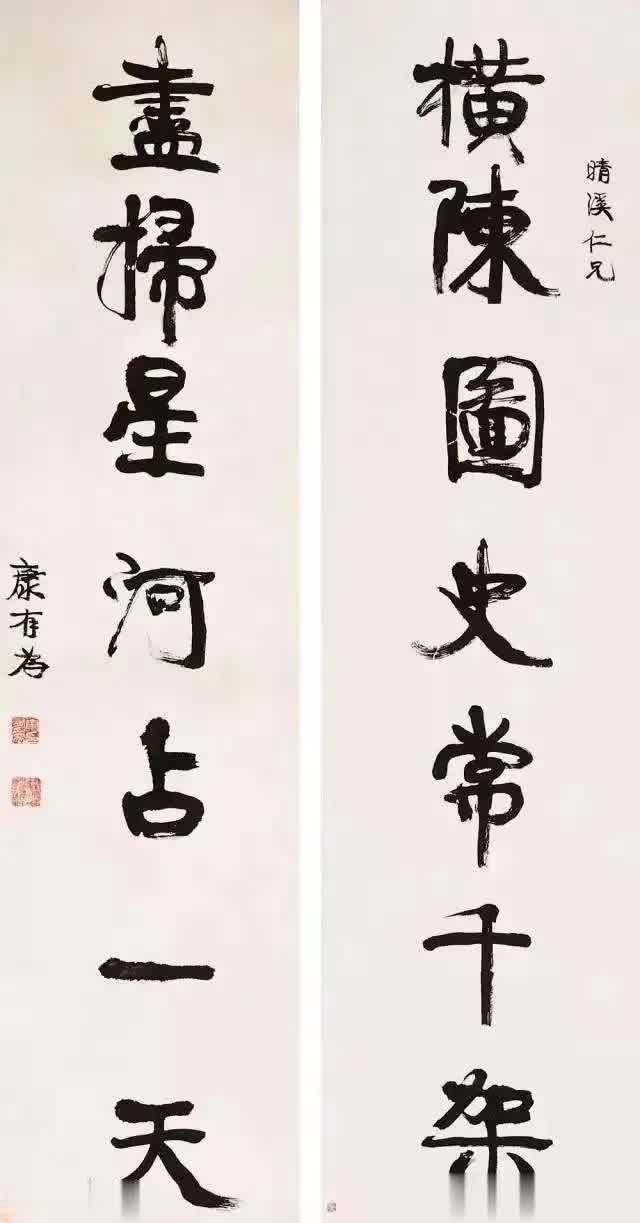 晴溪仁兄
橫陳圖史常千架
盡掃星河占一天
康有為